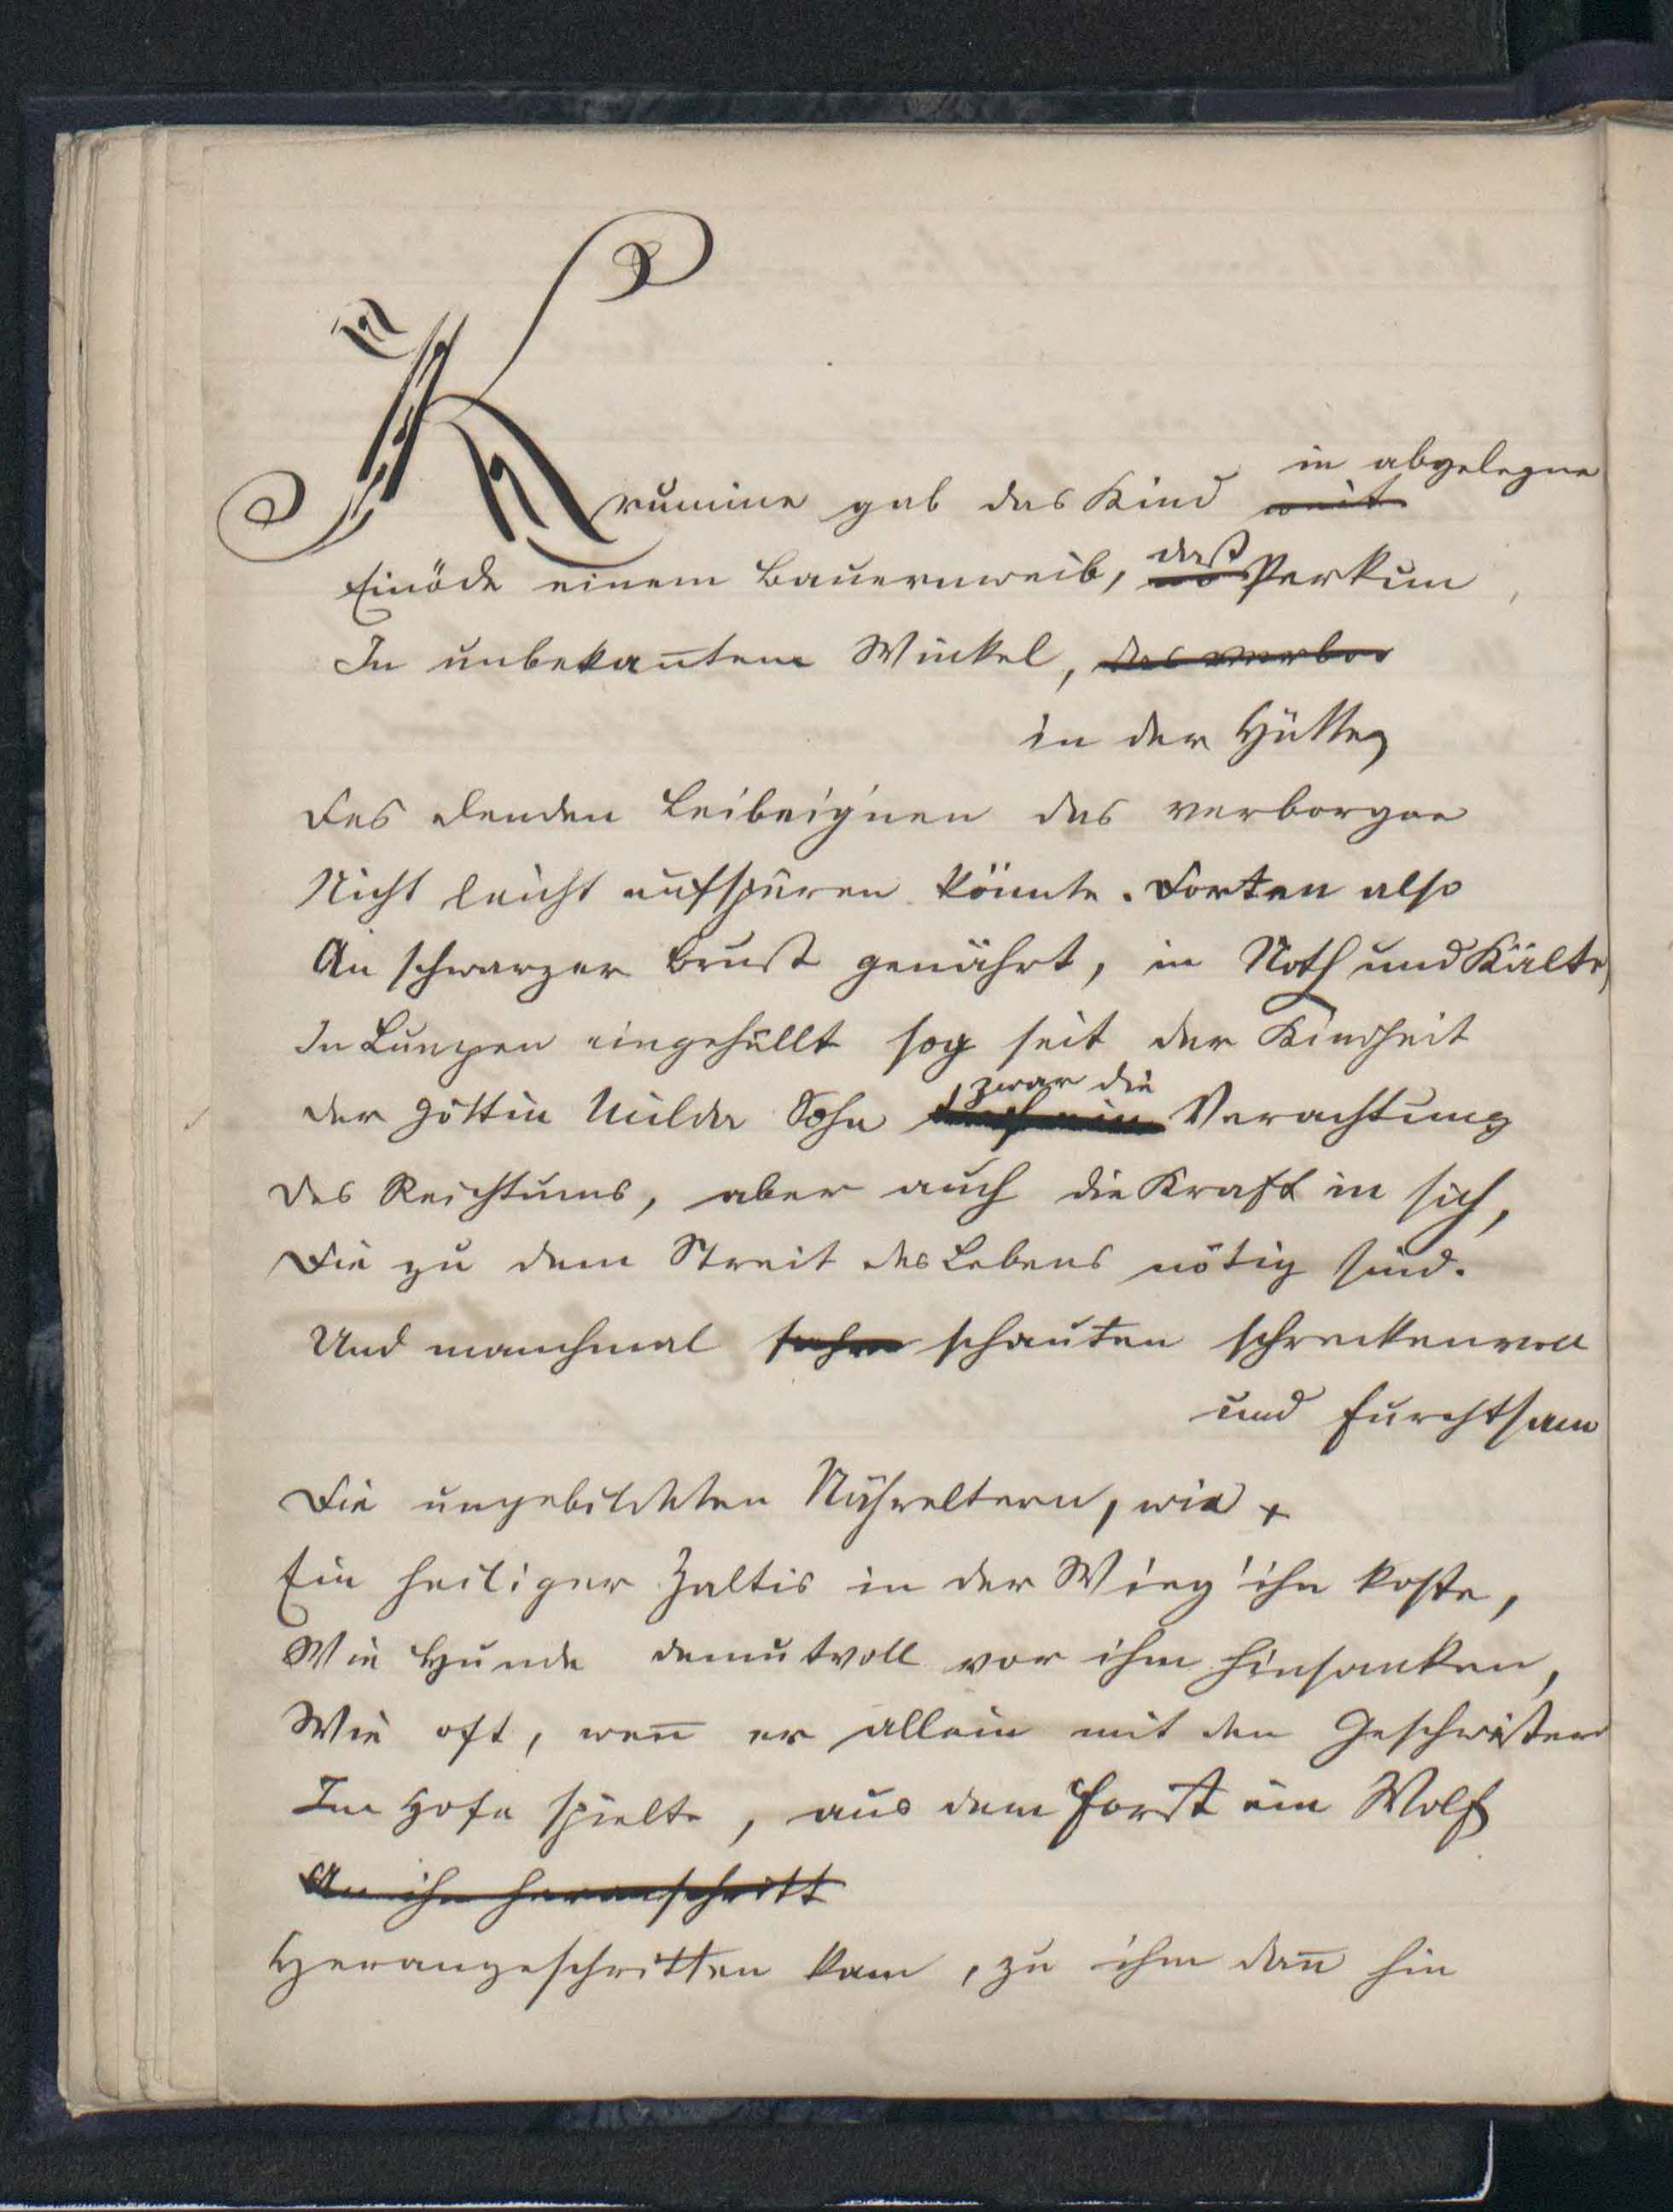 in abgelegne
Krumine gab das Kind weit
Einöde einem Bauernweib, daß Perkun
In unbekan̄tem Winkel, das verbor
in der Hütte
Des elenden Leibeignen das verborgne
Nicht leicht aufspüren könnte. Dorten also
An schwarzer Brust genährt, in Noth und Kälte,
In Lumpen eingehüllt sog seit der Kindheit
zwar die
Der Göttin Milda Sohn Verachtung
Des Reichtums, aber auch die Kraft in sich,
Die zu dem Streit des Lebens nötig sind.
Und manchmal sahen schauten schreckenvoll
und furchtsam
Die ungebildeten Nähreltern, wie +
Ein heiliger Zaltis in der Wieg' ihn koste,
Wie Hunde demutvoll vor ihm hinsanken,
Wie oft, wen̄ er allein mit den Geschwistern
Im Hofe spielte, aus dem Forst ein Wolf
An ihn heranschritt
Herangeschritten kam, zu ihm dan̄ hin